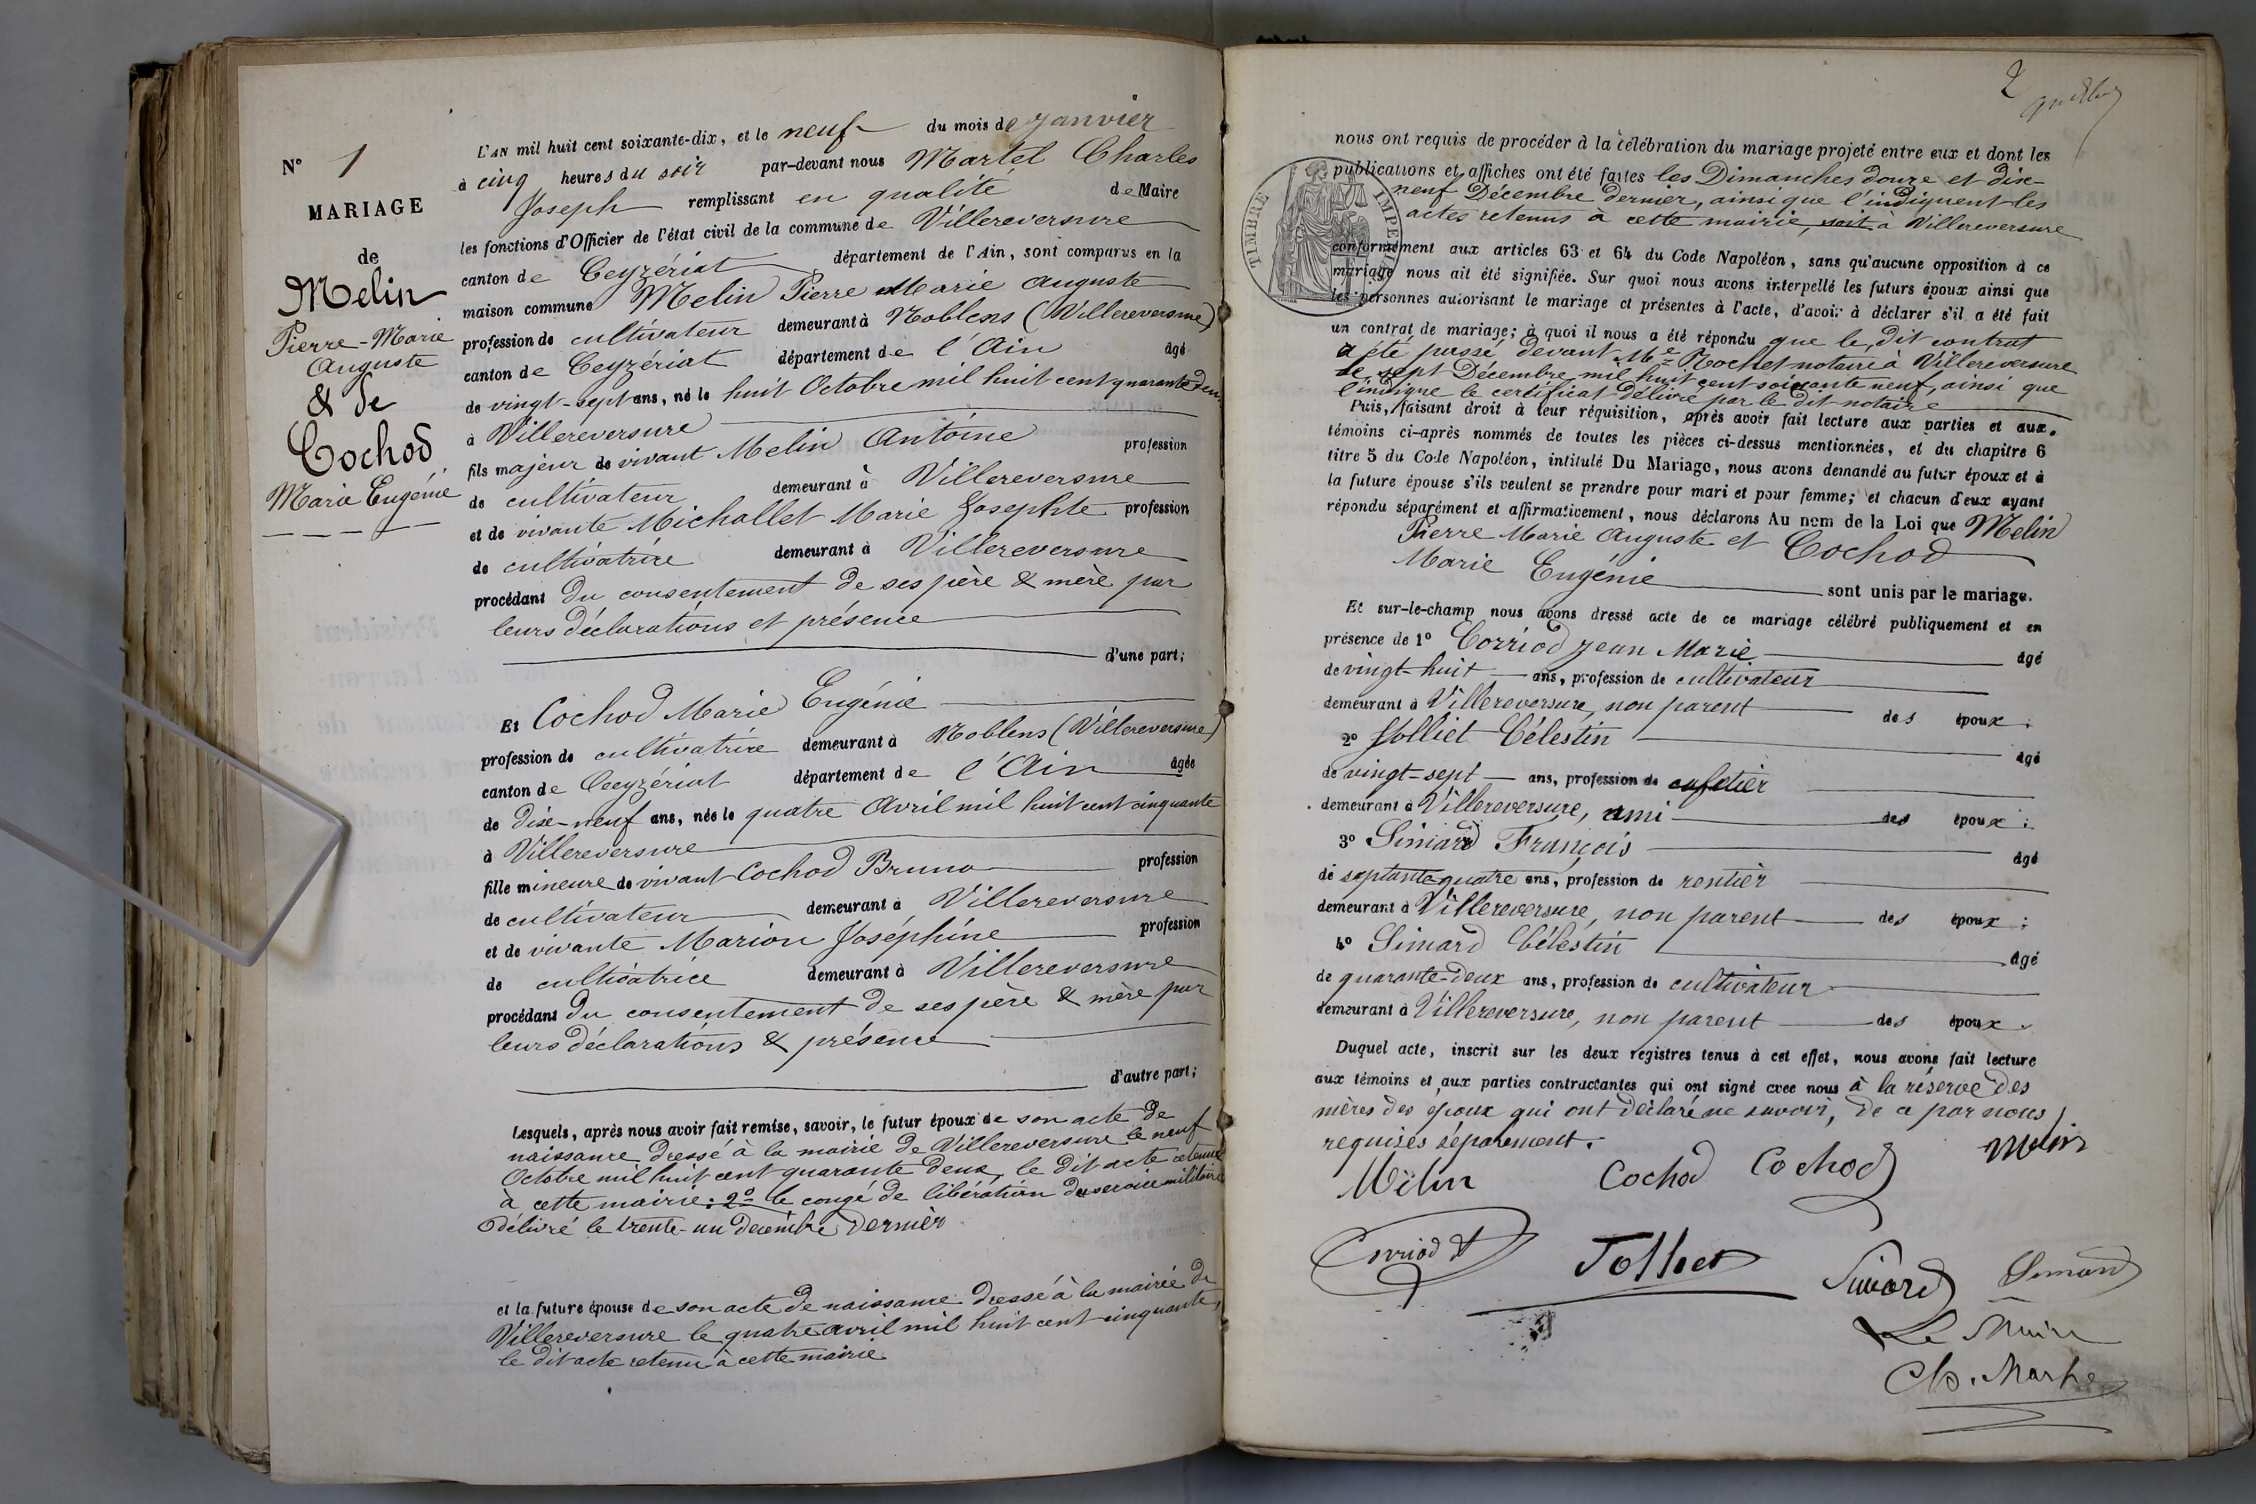 N° 1
MARIAGE
de
Melin
Pierre-Marie
Auguste
& de
Cochod
Marie Eugénie
L'AN mil huit cent soixante-dix, et le neuf du mois de Janvier
à cinq heures du soir par-devant nous Martel Charles
Joseph remplissant en qualité de Maire
les fonctions d'Officier de l'état civil de la commune de Villereversure
canton de Ceyzériat département de l'Ain, sont comparus en la
maison commune Melin Pierre Marie Auguste
profession de cultivateur demeurant à Noblens (Villereversure)
canton de Ceyzériat département de l'Ain âgé
de vingt-sept ans, né le huit Octobre mil huit cent quarante deux
à Villereversure
fils majeur de vivant Melin Antoine profession
de cultivateur demeurant à Villereversure
et de vivante Michallet Marie Josephte profession
de cultivatrice demeurant à Villereversure
procédant du consentement de ses père & mère par
leurs déclarations et présence
d'une part;
Et Cochod Marie Eugénie
profession de cultivatrice demeurant à Noblens (Villereversure)
canton de Ceyzériat département de l'Ain âgée
de dix-neuf ans, née le quatre Avril mil huit cent cinquante
à Villereversure
fille mineure de vivant Cochod Bruno profession
de cultivateur demeurant à Villereversure
et de vivante Marion Joséphine profession
de cultivatrice demeurant à Villereversure
procédant du consentement de ses père & mère par
leurs déclarations & présence
d'autre part;
Lesquels, après nous avoir fait remise, savoir, le futur époux de son acte de
naissance dressé à la mairie de Villereversure le neuf
Octobre mil huit cent quarante deux, le dit acte retenu
à cette mairie: 2° le congé de libération du service militaire
délivré le trente-un décembre dernier
et la future épouse de son acte de naissance dressé à la mairie de
Villereversure le quatre avril mil huit cent cinquante,
le dit acte retenu à cette mairie
2
nous ont requis de procéder à la célébration du mariage projeté entre eux et dont les
publications et affiches ont été faites les Dimanches douze et dix-
neuf Décembre dernier, ainsi que l'indiquent les
actes retenus à cette mairie, soit à Villereversure
TIMBRE IMPERIAL
conformément aux articles 63 et 64 du Code Napoléon, sans qu'aucune opposition à ce
mariage nous ait été signifiée. Sur quoi nous avons interpellé les futurs époux ainsi que
les personnes autorisant le mariage et présentes à l'acte, d'avoir à déclarer s'il a été fait
un contrat de mariage; à quoi il nous a été répondu que le dit contrat
a été passé devant Me Rochet notaire à Villereversure
le sept Décembre mil huit cent soixante neuf, ainsi que
l'indique le certificat délivré par le dit notaire
Puis, faisant droit à leur réquisition, après avoir fait lecture aux parties et aux
témoins ci-après nommés de toutes les pièces ci-dessus mentionnées, et du chapitre 6
titre 5 du Code Napoléon, intitulé Du Mariage, nous avons demandé au futur époux et à
la future épouse s'ils veulent se prendre pour mari et pour femme; et chacun d'eux ayant
répondu séparément et affirmativement, nous déclarons Au nom de la Loi que Melin
Pierre Marie Auguste et Cochod
Marie Eugénie sont unis par le mariage.
Et sur-le-champ nous avons dressé acte de ce mariage célébré publiquement et en
présence de 1° Corriod Jean Marie âgé
de vingt-huit ans, profession de cultivateur
demeurant à Villereversure, non parent des époux;
2° Jolliet Célestin âgé
de vingt-sept ans, profession de cafetier
demeurant à Villereversure, ami des époux;
3° Simard François âgé
de septante quatre ans, profession de rentier
demeurant à Villereversure, non parent des époux;
4° Simard Célestin âgé
de quarante-deux ans, profession de cultivateur
demeurant à Villereversure, non parent des époux.
Duquel acte, inscrit sur les deux registres tenus à cet effet, nous avons fait lecture
aux témoins et aux parties contractantes qui ont signé avec nous à la réserve des
mères des époux qui ont déclaré ne savoir, de ce par nous
requises séparément.
Melin Cochod Cochod Melin
Corriod Jolliet Simard Simard
Le Maire
Ch. Martel